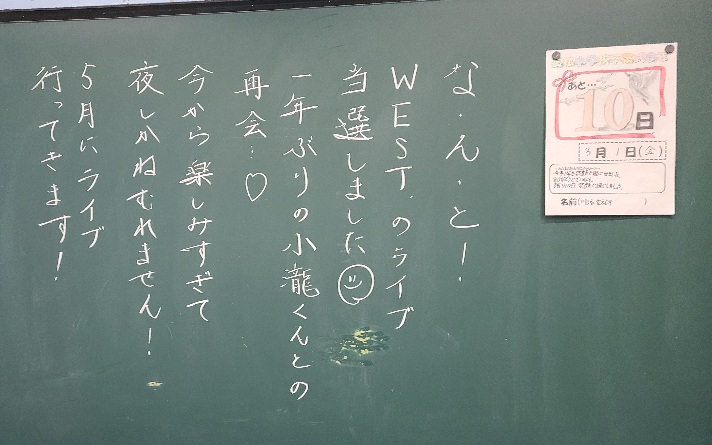 な・ん・と！
WEST.のライブ
当選しました
一年ぶりの小瀧くんとの
再会…♡
今から楽しみすぎて
夜しかねむれません！
5月にライブ
行ってきます！
あと…
10日
3月1日(金)
名前( )